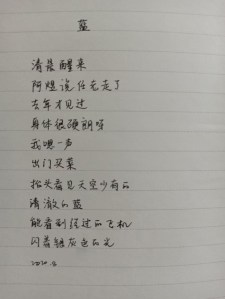 蓝
清晨醒来
阿煜说任老走了
去年才见过
身体很硬朗呀
我嗯一声
出门买菜
抬头看见天空少有的
清澈的蓝
能看到经过的飞机
闪着银灰色的光